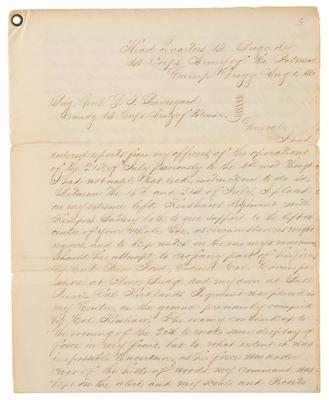 Head Quarters 1st Brigade
1st Corps Army of the Potomac
Camp Gregg Aug 1, 186
Brig Genl G. T. Beauregard
Comdg 1st Corps Army of Potomac
General
I had
ordered reports from my officers of the operations
of the 21st of July previously to the
I had not until that
instructions to do so.
Between the 18th and 21st of July, I placed
on my extreme left Kershaw's Regiment with
Kemper's Battery both to give support to the left or
centre of your whole line, as circumstances might
require and to keep watch on the enemy's movements
should he attempt to cross any part of his force
by
Ford, Colonel
at Stone Bridge and my own at
Col Kirkland's Regiment was placed in
my Centre, on the ground previously occupied
by Col Kershaw. The enemy continued up to
the evening of the 20th to make some display of
force in my front, but to what extent it was
impossible to ascertain, as his force was under
cover of the hills & woods. My command was
kept on the alert, and my scouts and